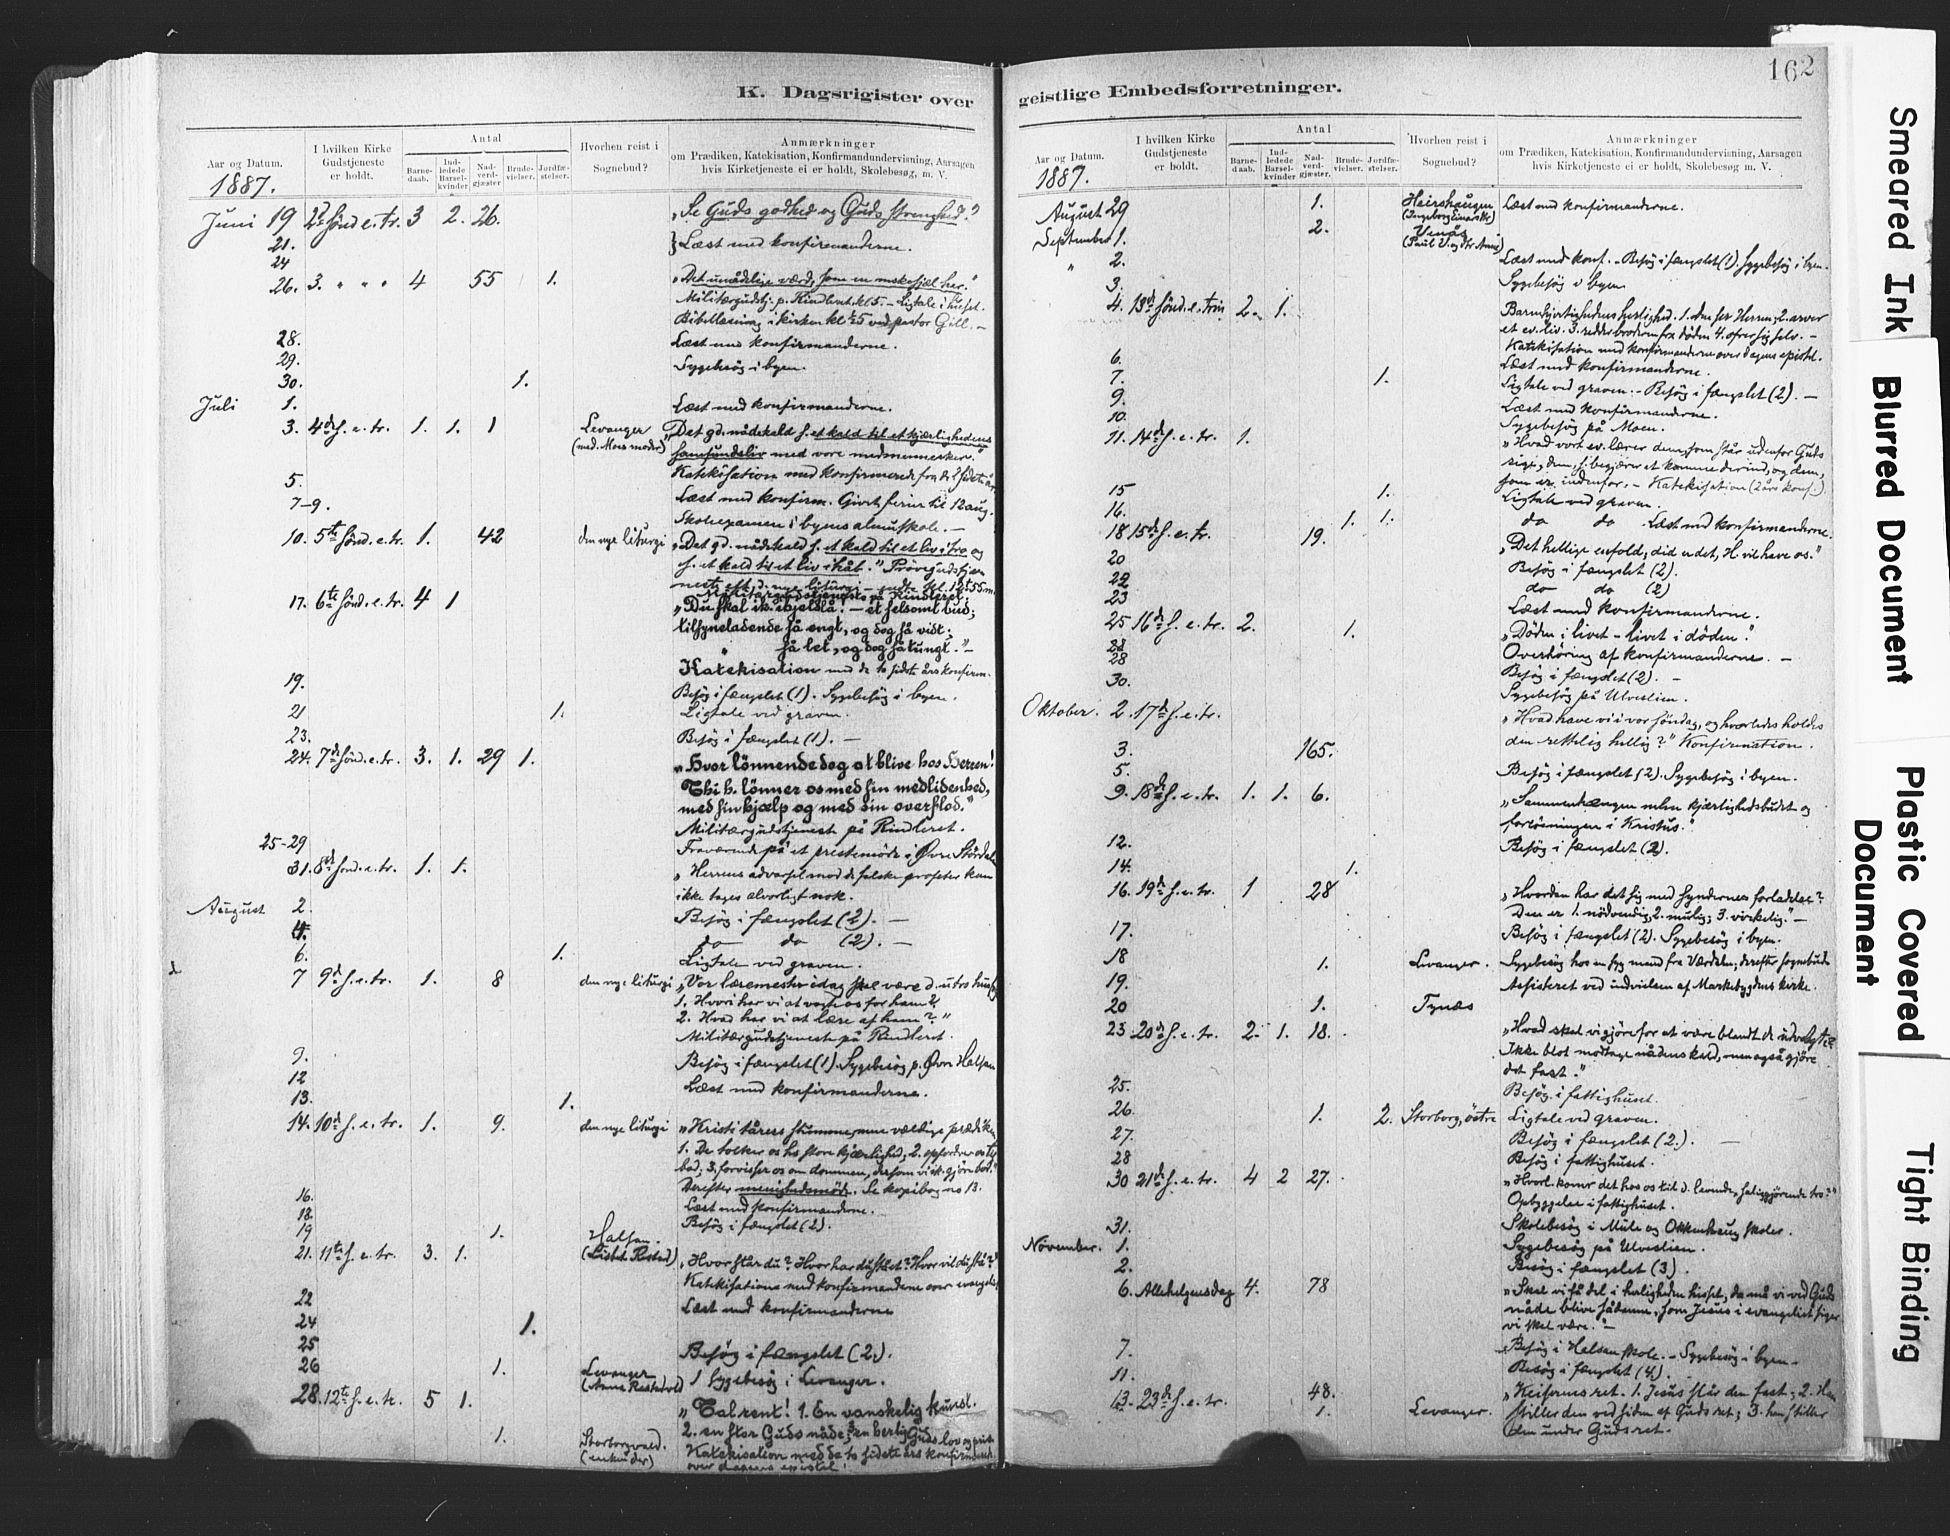 162
K. Dagsrigister over geistlige Embedsforretninger.
Aar og Datum.
1887.
I hvilken Kirke Gudstjeneste er holdt.
Antal
Barne-daab.
Ind-ledede Barsel-kvinder
Nad-verd-gjæster.
Brude-vielser.
Jordfæ-stelser.
Hvorhen reist i Sognebud?
Anmærkninger
om Prædiken, Katekisation, Konfirmandundervisning, Aarsagen
hvis Kirketjeneste ei er holdt, Skolebesøg, m. V.
Juni 19 2den sønd. e. tr. 3 2. 26. "Se Guds godhed og Guds strenghed."
21. Læst med konfirmanderne.
24
26. 3. " " " 4 55 1. "Det umådelige værd, som en mskesjæl har."
Militærgudstj. p. Rindleret kl 5. - Ligtale i huset.
Bibellæsning i kirken kl ved pastor Gill. -
28. Læst med konfirmanderne.
29. Sygebesøg i byen.
30. 1.
Juli 1. Læst med konfirmanderne.
3. 4de s. e. tr. 1. 1. 1 Levanger "Det gd. nådekald s. et kald til et kjærlighedens
samfundsliv med vore medmennesker."
Katekisation med konfirmerede fra de 2 sidste
5. Læst med konfirm. Givet ferier til 12 aug.
7-9. Skoleexamen i byens almuskole. -
10. 5te sønd. e. tr. 1. 42 den nye liturgi "Det gd. nådekald s. et kald til et liv i tro og
s. et kald til et liv i håb." Prøvegudstjenestens
17. 6te sønd. e. tr. 4 1 "Du skal ik. ihjelslå! - et følsomt bud;
tilsyneladende så engt, og dog så vidt;
" så let, og dog så tungt." -
Katekisation med de to sidste års konfirm.
19. Besøg i fængslet (1). Sygebesøg i byen.
21 1. Ligtale ved graven.
23. Besøg i fængslet (1). -
24. 7de sønd. e. tr. 3. 1. 29 1. "Hvor lønnende dog at blive hos Herren!
Thi h. lønner os med sin medlidenhed,
med sin hjælp og med sin overflod."
Militærgudstjeneste på Rindleret.
25-29 Fraværende på et prestemøde i Øvre Stördal
31. 8de sønd. e. tr. 1. 1. "Herrens advarsel mod de falske profeter kan
ikke tages alvorligt nok.
August 2. Besøg i fængslet (2). -
4. do do (2). -
6. 1. Ligtale ved graven.
7 9de s. e. tr. 1. 8 den nye liturgi "Vor læremester idag skal være d. utro hush.
1. Hvori har vi at vogte os for ham?
2. Hvad har vi at lære af ham?"
Militærgudstjeneste på Rindleret.
9. Besøg i fængslet (1). Sygebesøg p. Øvre Halsan
12 Læst med konfirmanderne.
13. 1.
14. 10de s. e. tr. 1. 9. den nye liturgi "Kristi tårers stumme, men vældige prædiken
1. De tolker os hs store kjærlighed; 2. opfordrer os til
bod; 3. forvisser os om dommen, dersom vi ik. gjøre bod."
Derefter menighedsmøde. Se kopibog no 13.
16. Læst med konfirmanderne.
18. Besøg i fængslet (2).
19 1. Halsan.
21. 11te s. e. tr. 3. 1. "Hvor står du? Hvor har du stået? Hvor vil du stå?"
Katekisation med konfirmanderne over evangeliet
22 Læst med konfirmanderne
24 1.
25 Besøg i fængslet (2).
26 1. Levanger 1 Sygebesøg i Levanger.
28. 12te s. e. tr. 5 1. "Tal rent! 1. En vanskelig kunst.
1. Storborgvald. Katekisation med de to sidste års konfirmerede
over dagens epistel.
Aar og Datum.
1887.
I hvilken Kirke Gudstjeneste er holdt.
Antal
Barne-daab.
Ind-ledede Barsel-kvinder
Nad-verd-gjæster,
Brude-vielser.
Jordfæ-stelser.
Hvorhen reist i Sognebud?
Anmærkninger
om Prædiken, Katekisation, Konfirmandundervisning, Aarsagen
hvis Kirketjeneste ei er holdt, Skolebesøg, m. V.
August 29 1. Læst med konfirmanderne.
September 1. 2. Venås
" 2. Læst med konf. - Besøg i fængslet (1). Sygebesøg i byen.
3. Sygebesøg i byen
4. 13de sønd. e. trin 2. 1. Barmhjertighedens herlighed. 1. den ser Herren; 2. arver
et ev. liv. 3. redder brodren fra døden 4. ofrer sig selv. -
Katekisation med konfirmanderne over dagens epistel.
6. Læst med konfirmanderne.
7. 1. Ligtale ved graven. - Besøg i fængslet (2). -
9. Læst med konfirmanderne.
10. Sygebesøg på Moen.
11. 14de s. e. tr. 1. "Hvad vort ev. lærer dem, som står udenfor Guds
rige, dem, s. begjærer at komme derind, og dem,
som er indenfor. - Katekisation (2 års konf.).
15 1. Ligtale ved graven.
16. 1. 1. do do Læst med konfirmanderne.
18 15de s. e. tr. 19. "Det hellige enfold, did er det, H. vil have os."
20 Besøg i fængslet (2).
22 do do (2)
23 Læst med konfirmanderne.
25 16de s. e. tr. 2. 1. "Døden i livet - livet i døden."
28 Overhøring af konfirmanderne. -
28 Besøg i fængslet (2). -
30. Sygebesøg på Ulveslien.
Oktober. 2. 17de s. e. tr. "Hvad have vi i vor søndag, og hvorledes holdes
den rettelig hellig?" Konfirmation.
3. 165.
5. Besøg i fængslet (2). Sygebesøg i byen.
9. 18de s. e. tr. 1. 1. 6. "Sammenhængen mellem kjærlighedsbudet og
forløsningen i Kristus."
12. Besøg i fængslet (2).
14. 1.
16. 19de s. e. tr. 1 28 "Hvordan har det sig med syndernes forladelse?
Den er 1. nødvendig, 2. mulig; 3. virkelig." -
17. Besøg i fængslet (2). Sygebesøg i byen.
18 1. Levanger. Sygebesøg hos en syg mand fra Værdalen, derefter sognebud.
19. Assisteret ved indvielsen af Markebygdens kirke.
20 1. Tynæs
23 20de s. e. tr. 2. 1. 18. "Hvad skal vi gjøre for at være blandt de udvalgte?
Ikke blot modtage nådens kald, men også gjøre
det fast."
25. Besøg i fattighuset.
26. 1. 2. Storborg, östre Ligtale ved graven.
27. Besøg i fængslet (2.). -
28 Besøg i fattighuset.
30 21de s. e. tr. 4 2 27. "Hvorl. komr det hos os til d. levende, saliggjörende tro?"
Opbyggelse i fattighuset.
31. Skolebesøg i Mule og Okkenhaug skoler.
November. 1. Sygebesøg på Ulveslien.
2. Besøg i fængslet (3).
6. Allehelgensdag 4. 78 "Skal vi få del i herligheden hisset, da må vi ved Guds
nåde blive sådanne, som Jesus i evangeliet siger
vi skal være." -
7. Besøg i Halsan skole. - Sygebesøg i byen -
11. Besøg i fængslet (4.)
13. 23de s. e. tr. 48. "Keiserens ret. 1. Jesus slår den fast; 2. Han
1. Levanger. stiller den ved siden af Guds ret; 3. han stiller
den under Guds ret.
Smeared Ink
Blurred Document
Plastic Covered Document
Tight Binding